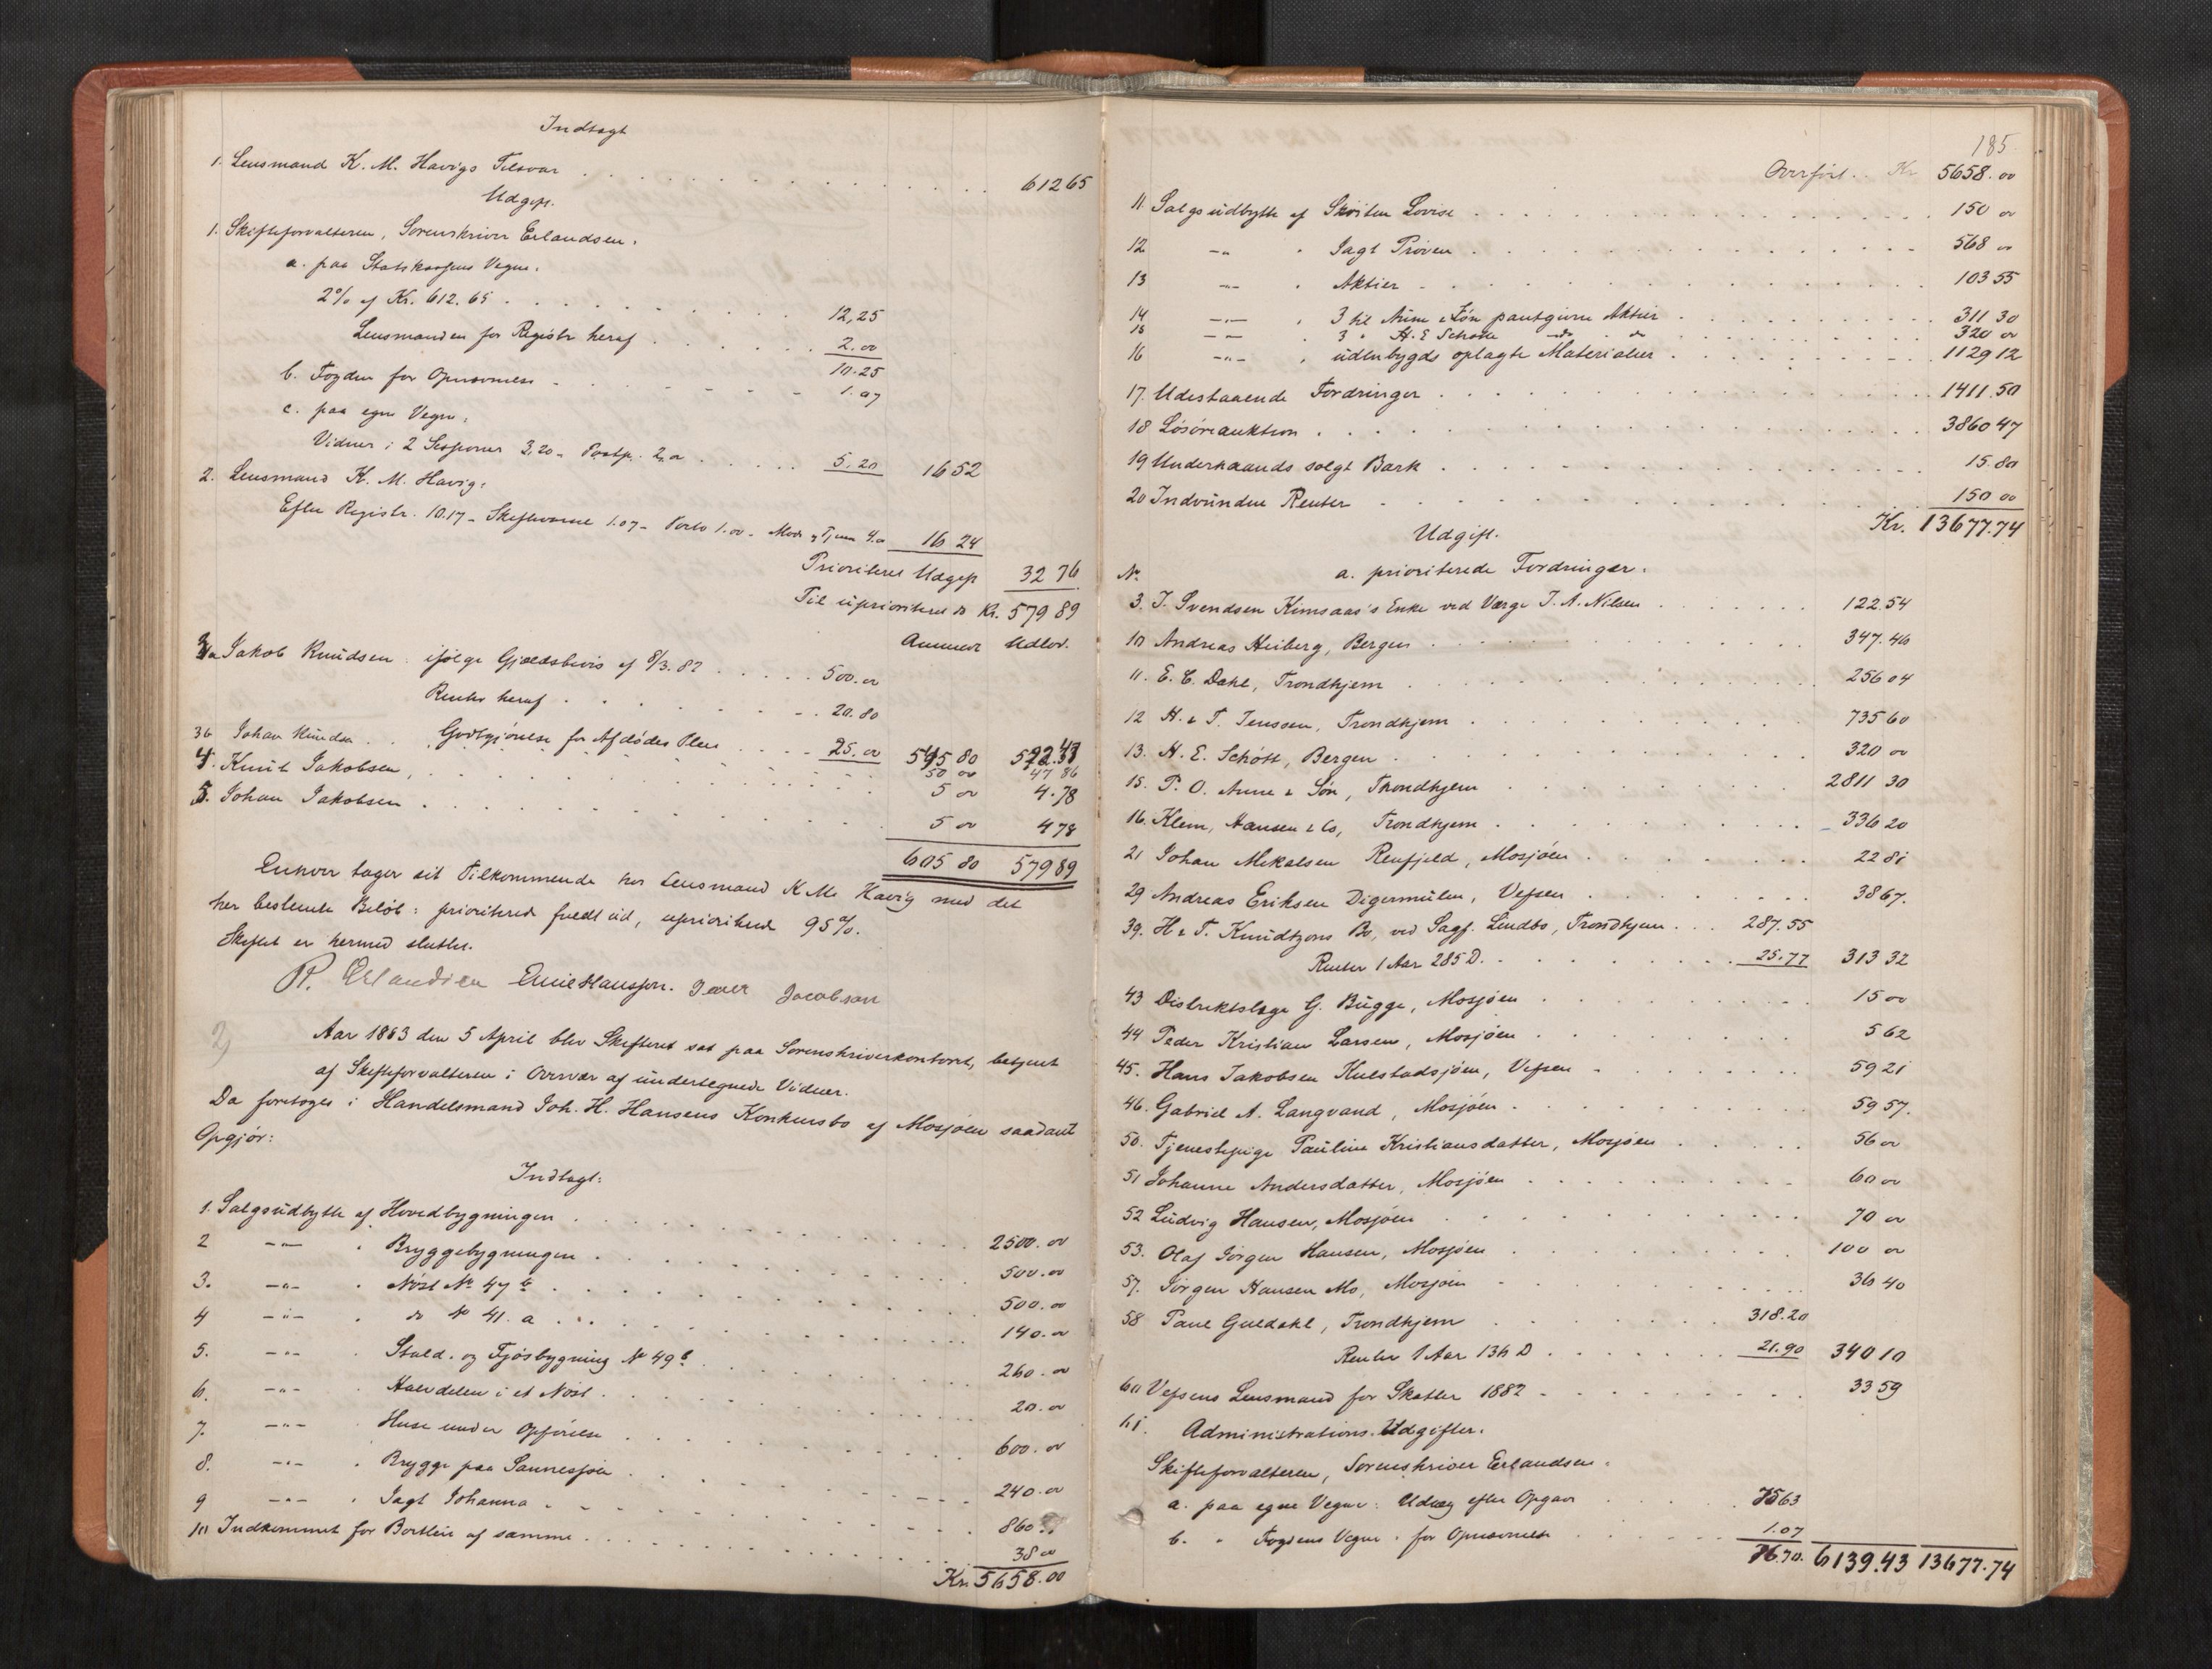 Indtægt
1. Lensmand K. M. Havigs Tilsvar . . . 612 65
Udgift.
1. Skifteforvalteren, Sorenskriver Erlandsen:
a. paa Statskassens Vegne:
2% af Kr. 612.65 . . . 12,25
Lensmanden for Registr heraf . . . 2.00
10.25
b. Fogden for Opnævnelse . . . 1.07
c. paa egne Vegne:
Vidner i 2 Sessioner 3,20 - Postp. 2,00 . . . 5.20 16 52
2. Lensmand K. M. Havig:
Efter Registr. 10.17 - Skiftevarsel 1.07 - Porto 1.00 - 4.00 16 24
Prioriteret Udgift 32 76
Til uprioriteret do Kr. 579 89
Anmeldt Udlod.
3a Jakob Knudsen: ifølge Gjældsbevis af 8/3.82 . . . 500.00
Renter heraf . . . 20.80
3b Johan Knudsen . . Godtgjörelse for Afdödes Pleie . . . 25.00 545 80 522.47
50 00 47 86
4. Knut Jakobsen, . . . 5 00 4.78
5. Johan Jakobsen . . . 5 00 4 78
605 80 579 89
Enhver tager sit Tilkommende hos Lensmand K M. Havig med det
her bestemte Belöb: prioriterede fuldt ud, uprioriterede 95%.
Skiftet er hermed sluttet.
R. Erlandsen Emil Hansson. Iver Jacobsen
2) Aar 1883 den 5 April blev Skifteret sat paa Sorenskriverkontoret, betjent
af Skifteforvalteren i Overvær af undertegnede Vidner.
Da foretoges i Handelsmand Joh. H. Hansens Konkursbo af Mosjøen saadant
Opgjör:
Indtægt:
1. Salgsudbytte af Hovedbygningen . . . 2500.00
2 -"- " Bryggebygningen . . . 500.00
3. -"- " Nöst No 47 b . . . 500.00
4 -"- " do No 41. a . . . 140.00
5. -"- " Stald- og Fjösbygning No 49 b . . . 260.00
6. -"- " Halvdelen i et Nöst . . . 20.00
7. -"- " Huse under Opförelse . . . 600.00
8. -"- " Brygge paa Sannesjøen . . . 240.00
9 -"- " Jagt Johanna . . . 860
10 Indkommet for Bortleie af samme . . . 38 00
Kr. 5658.00
185.
Overført . . Kr 5658.00
11. Salgsudbytte af Skøiten Lovise . . . 150 00
12 -"- " Jagt Pröven . . . 568 00
13 -"- " Aktier . . . 103 55
14 -"- " 3 til Aune & Sön pantgivne Aktier . . . 311 30
15 -"- " 3 " H. E Schøtt do do . . . 320 00
16 -"- " udenbygds oplagte Materialier . . . 1129 12
17. Udestaaende Fordringer . . . 1411.50
18 Lösöreauktion . . . 3860 47
19 Underhaands solgt Bark . . . 15.80
20 Indvundne Renter . . . 150 00
Kr. 13677.74
Udgift.
No a. prioriterede Fordringer:
3. J. Svendsen Kimsaas's Enke ved Værge J. A. Nilsen . . . 122.54
10 Andreas Heiberg, Bergen . . . 347.46
11. E. C. Dahl, Trondhjem . . . 256 04
12 H. & F. Jenssen, Trondhjem . . . 735 60
13. H. E. Schött, Bergen . . . 320 00
15. P. O. Aune & Sön, Trondhjem . . . 2811 30
16. Klem, Hansen & Co, Trondhjem . . . 336 20
21 Johan Mikalsen Renfjeld, Mosjöen . . . 22 81
29 Andreas Eriksen Digermulen, Vefsen . . . 38 67.
39. H & F. Knudtzons Bo, ved Sagf. Lindbo, Trondhjem . . . 287.55
Renter 1 Aar 285 D. . . . 25.77 313 32
43 Distriktslæge G. Bugge, Mosjöen . . . 15 00
44 Peder Kristian Larsen, Mosjöen . . . 5 62
45. Hans Jakobsen Kulstadsjöen, Vefsen . . . 59 21
46. Gabriel A. Langvand, Mosjöen . . . 59 57.
50. Tjenestepige Pauline Kristiansdatter, Mosjöen . . . 56 00
51 Johanne Andersdatter, Mosjöen . . . 60 00
52 Ludvig Hansen, Mosjöen . . . 70 00
53. Olaf Jörgen Hansen, Mosjöen . . . 100 00
57. Jörgen Hansen Mo, Mosjöen . . . 36 40
58 Paul Guldahl, Trondhjem . . . 318.20
Renter 1 Aar 136 D . . . 21.90 340 10
60 Vefsens Lensmand for Skatter 1882 . . . 33 59
61. Administrations-Udgifter.
Skifteforvalteren, Sorenskriver Erlandsen:
a. paa egne Vegne: Udlæg efter Opgave . . . 75 63
b. " Fogdens Vegne: for Opnævnelse . . . 1.07
76.70. 6139.43 13677.74